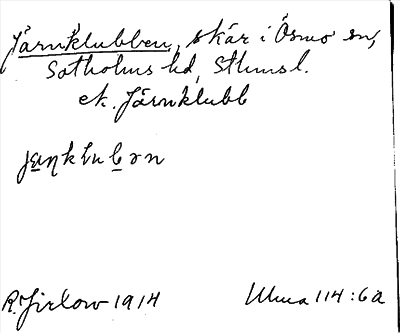 Järnklubben, skär i Ösmo sn,
Sotholms hd, Sthms l.
ek. Järnklubb
jäŋklubən
R. Jirlow 1914
Ulma 114:6a